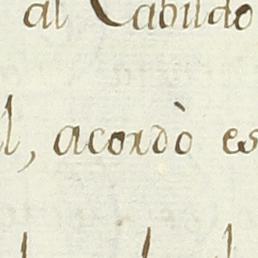 al Cabildo
l, acordò es